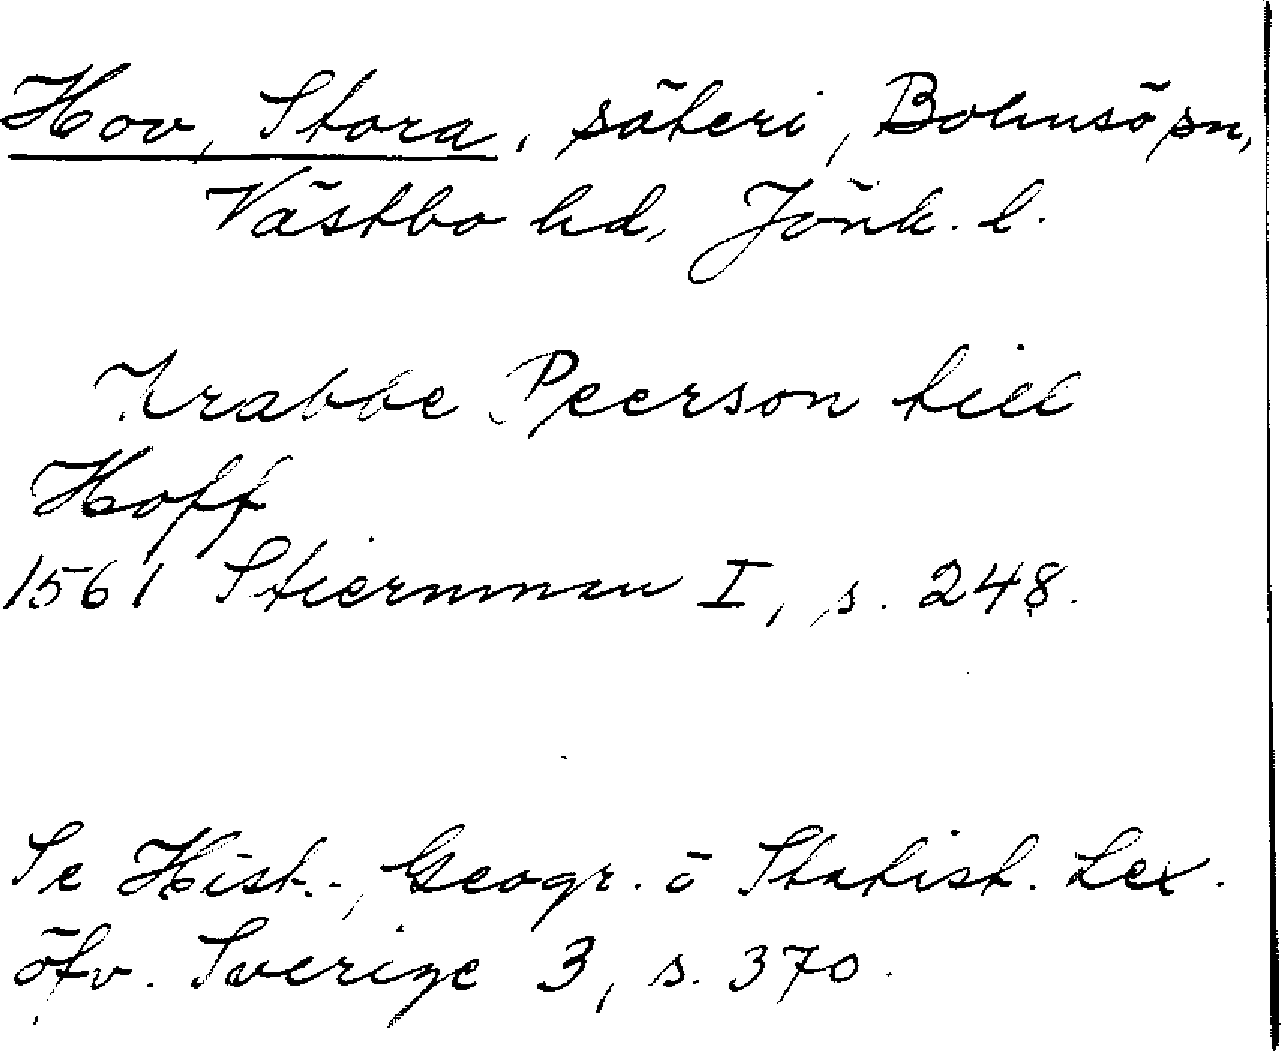 Hov, Stora, säteri, Bolmsö sn,
Västbo hd, Jönk. l.
Krabbe Peerson till
Hoff
1561 Stiernman I, s. 248.
Se Hist.-, Geogr. o Statist. Lex.
öfv. Sverige 3, s. 370.